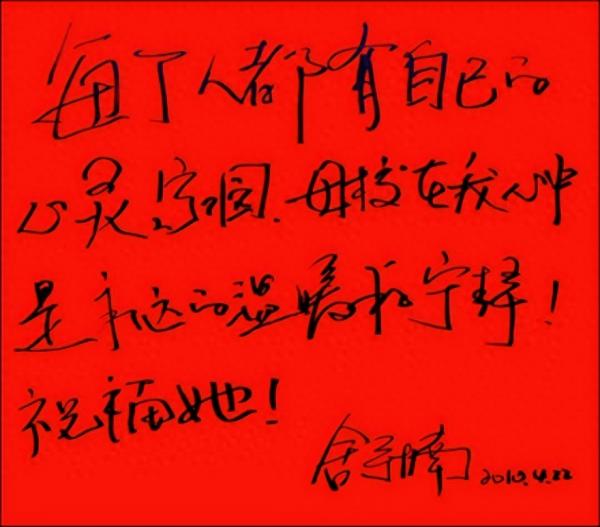 每个人都有自己的
心灵家园.母校在我心中
是永远的温馨和宁静!
祝福她!
2010.4.22